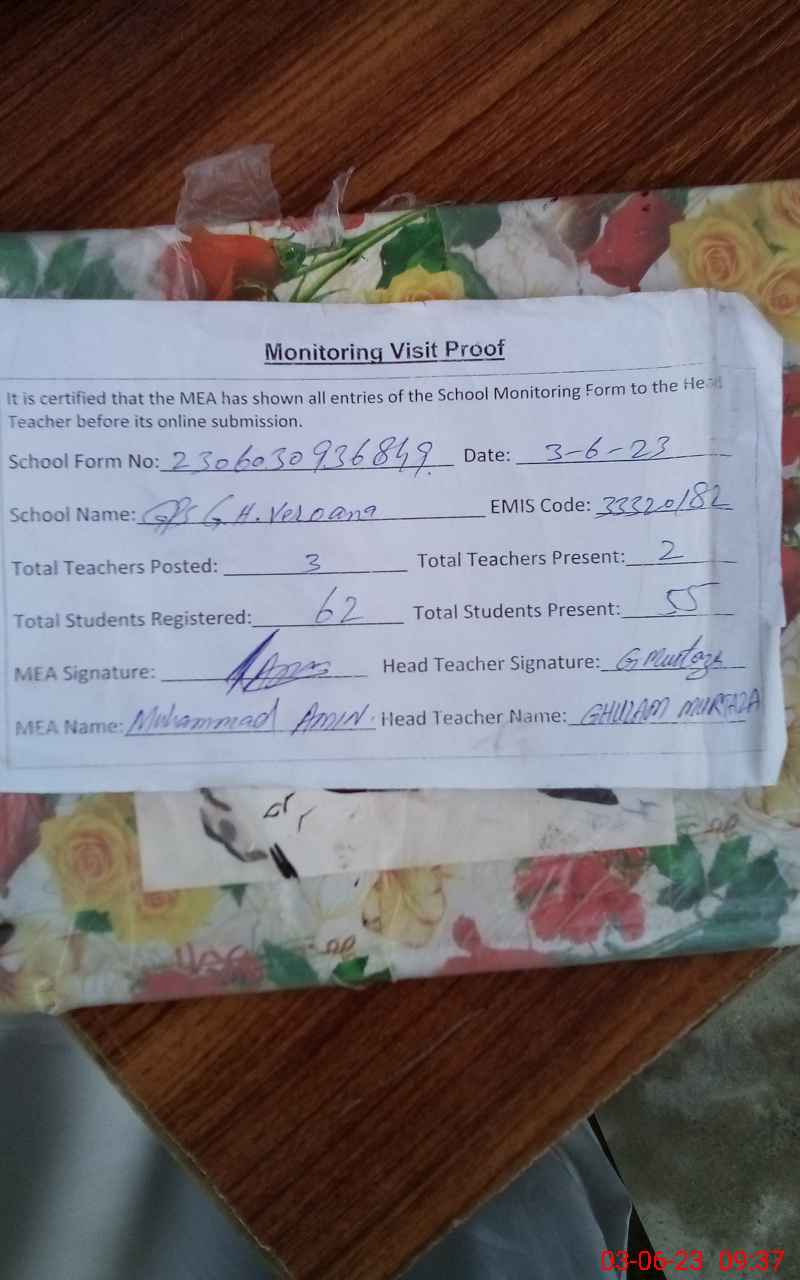 Monitoring Visit Proof
It is certified that the MEA has shown all entries of the School Monitoring Form to the Head
Teacher before its online submission.
School Form No: 2306030936849 Date: 3-6-23
School Name: GPS G H. Veroana EMIS Code: 33320182
Total Teachers Posted: 3 Total Teachers Present: 2
Total Students Registered: 62 Total Students Present: 55
MEA Signature: Head Teacher Signature: G Murtaza
MEA Name: Muhammad AMIN. Head Teacher Name: GHULAM MURTAZA
03-06-23 09:37